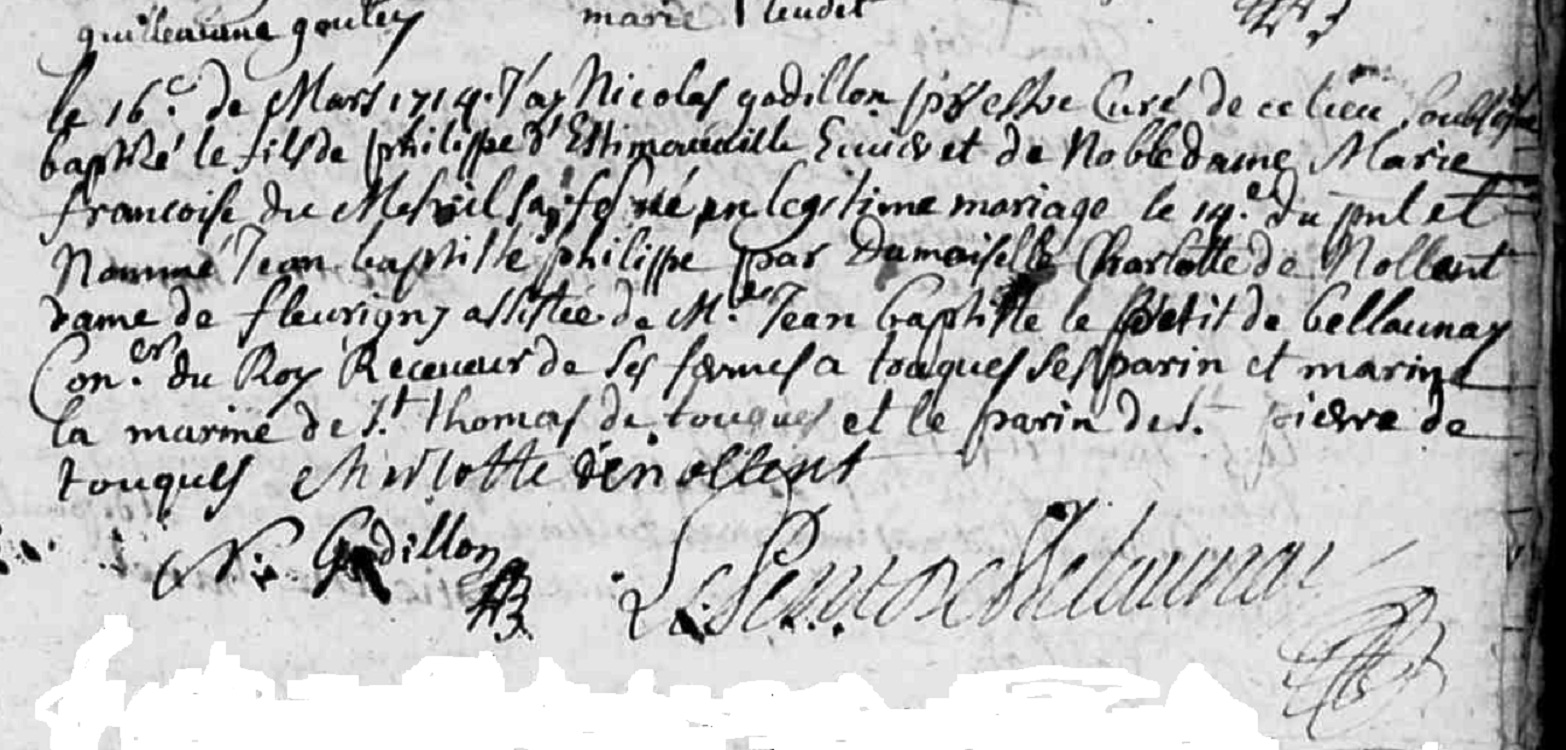 guilleaume gouley marie
le 16.e de Mars 1714. J'ay Nicolas godillon prestre Curé de ce lieu soubsigné
baptizé le fils de philippe d'Estimauville Ecuier et de Noble dame Marie
francoise du Mesnil sa fe né en legitime mariage le 14.e du pnt et
Nommé Jean baptiste philippe par Damoiselle Charlotte de Nollent
dame de fleurigny assistée de M.e Jean baptiste le petit de bellaunay
Con.er du Roy Receueur de ses fermes a touques ses parin et marine
la marine de s.t thomas de touques et le parin de s.t pierre de
touques Charlotte de nollent
N. Godillon Le Petit De Bellaunai